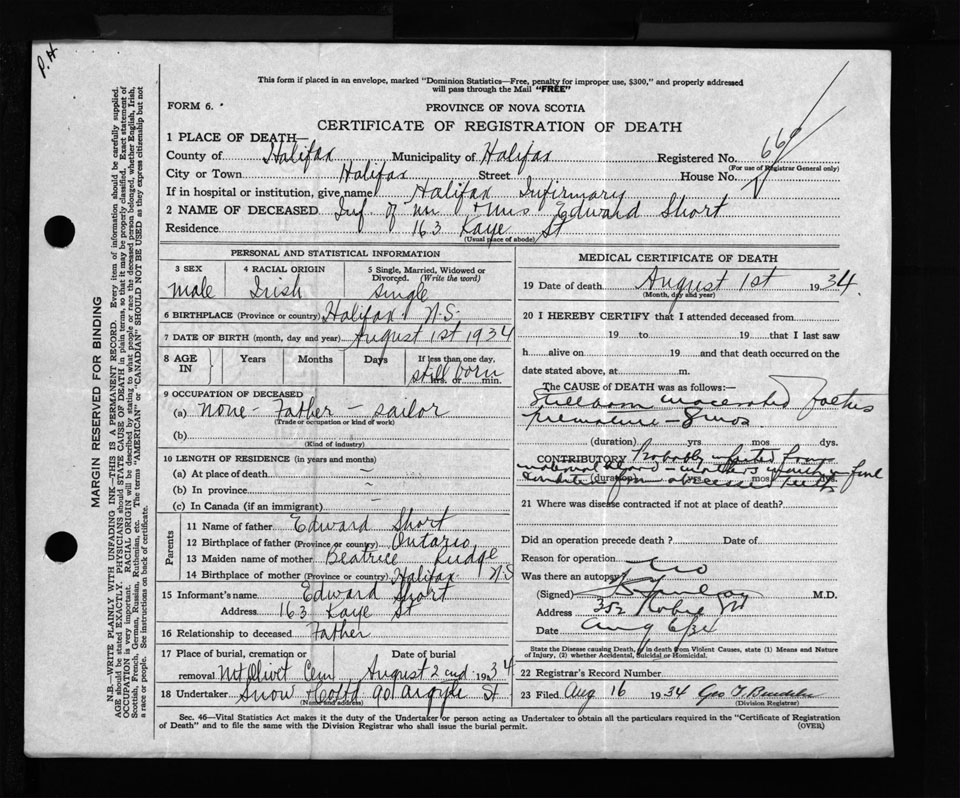 P.H
This form if placed in an envelope, marked "Dominion Statistics—Free, penalty for improper use, $300," and properly addressed
will pass through the Mail "FREE"
FORM 6.
PROVINCE OF NOVA SCOTIA
CERTIFICATE OF REGISTRATION OF DEATH
1 PLACE OF DEATH—
County of Halifax Municipality of Halifax Registered No. 669
(For use of Registrar General only)
City or Town Halifax Street House No.
If in hospital or institution, give name Halifax Infirmary
2 NAME OF DECEASED Inf of Mr & Mrs Edward Short
Residence 163 Kaye St
(Usual place of abode)
PERSONAL AND STATISTICAL INFORMATION
3 SEX 4 RACIAL ORIGIN 5 Single, Married, Widowed or
Divorced. (Write the word)
male Irish single
6 BIRTHPLACE (Province or country) Halifax N.S.
7 DATE OF BIRTH (month, day and year) August 1st 1934
8 AGE IN Years Months Days If less than one day,
still born
hrs. or min.
9 OCCUPATION OF DECEASED
(a) none - Father - sailor
(Trade or occupation or kind of work)
(b)
(Kind of industry)
10 LENGTH OF RESIDENCE (in years and months)
(a) At place of death
(b) In province
(c) In Canada (if an immigrant)
Parents
11 Name of father Edward Short
12 Birthplace of father (Province or country) Ontario
13 Maiden name of mother Beatrice Rudge
14 Birthplace of mother (Province or country) Halifax N.S
15 Informant's name Edward Short
Address 163 Kaye St
16 Relationship to deceased Father
17 Place of burial, cremation or Date of burial
removal Mt Olivet Cem August 2nd 1934
18 Undertaker Snow & Co Ltd 90 Argyle St
(Name and address)
MEDICAL CERTIFICATE OF DEATH
19 Date of death August 1st 1934
(Month, day and year)
20 I HEREBY CERTIFY that I attended deceased from
19 to 19 that I last saw
h alive on 19 and that death occurred on the
date stated above, at m.
The CAUSE of DEATH was as follows:—
Stillborn macerated foetus
premature - 8 mos.
(duration) yrs. mos. dys.
CONTRIBUTORY Probably infected from
maternal blood - mother's
(duration) yrs. mos. dys.
condition from abscessed teeth
21 Where was disease contracted if not at place of death?
Did an operation precede death? Date of
Reason for operation
Was there an autopsy No
(Signed) M.D.
Address 352 Robie St
Date Aug 6/34
State the Disease causing Death, or in death from Violent Causes, state (1) Means and Nature
of Injury, (2) whether Accidental, Suicidal or Homicidal.
22 Registrar's Record Number
23 Filed Aug 16 1934 Geo
(Division Registrar)
Sec. 46—Vital Statistics Act makes it the duty of the Undertaker or person acting as Undertaker to obtain all the particulars required in the "Certificate of Registration
of Death" and to file the same with the Division Registrar who shall issue the burial permit. (OVER)
MARGIN RESERVED FOR BINDING
N.B.—WRITE PLAINLY WITH UNFADING INK—THIS IS A PERMANENT RECORD. Every item of information should be carefully supplied.
AGE should be stated EXACTLY. PHYSICIANS should STATE CAUSE OF DEATH in plain terms, so that it may be properly classified. Exact statement of
OCCUPATION is very important. RACIAL ORIGIN will be described by stating to what people or race the deceased person belonged, whether English, Irish,
Scottish, French, German, Russian, Ruthenian, etc. The terms "AMERICAN" or "CANADIAN" SHOULD NOT BE USED as they express citizenship but not
a race or people. See instructions on back of certificate.